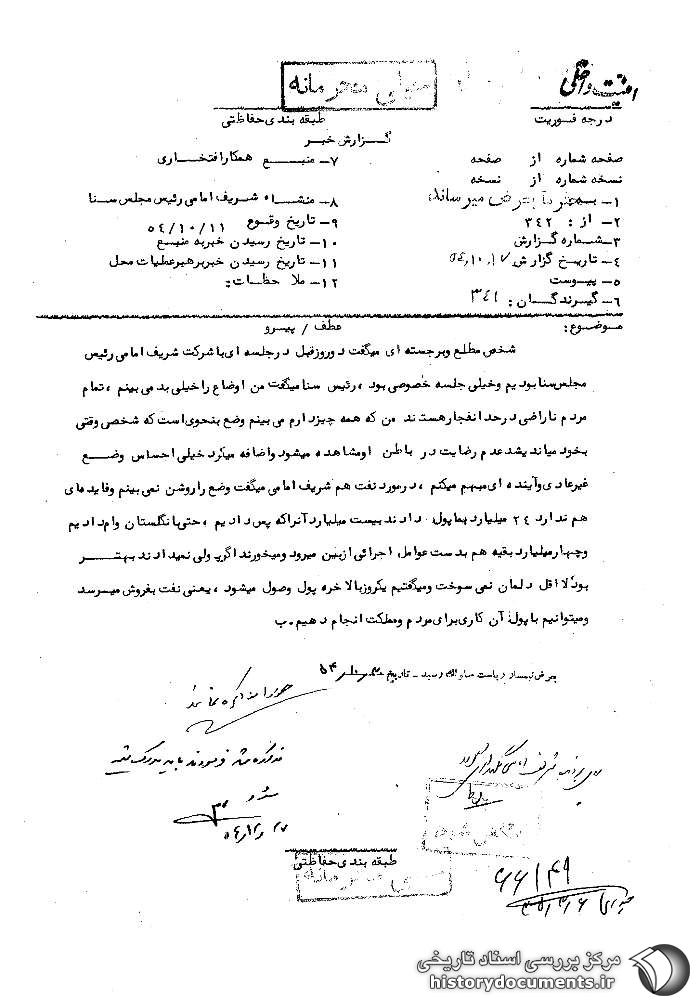 خیلی محرمانه
امنیت داخلی
درجه فوریت
طبقه بندی حفاظتی
گزارش خبر
صفحه شماره از صفحه
نسخه شماره از نسخه
۱- بمحترما بعرض میرساند،
۲- از : ۳۴۲
۳- شماره گزارش
۴- تاریخ گزارش ۵۴/۱۰/۱۷
۵- پیوست
۶- گیرندگان : ۳۴۱
۷- منبع همکار افتخاری
۸- منشاء شریف امامی رئیس مجلس سنا
۹- تاریخ وقوع ۵۴/۱۰/۱۱
۱۰- تاریخ رسیدن خبر به منبع
۱۱- تاریخ رسیدن خبر برهبر عملیات محل
۱۲- ملاحظات :
موضوع : عطف / پیرو
شخص مطلع وبرجسته ای میگفت دوروز قبل درجلسه ای با شرکت شریف امامی رئیس
مجلس سنا بودیم وخیلی جلسه خصوصی بود ، رئیس سنا میگفت من اوضاع راخیلی بد می بینم ، تمام
مردم ناراضی درحد انفجار هستند من که همه چیز دارم می بینم وضع بنحوی است که شخصی وقتی
بخود میاندیشد عدم رضایت در باطن اومشاهده میشود واضافه میکرد خیلی احساس وضع
غیرعادی وآینده ای مبهم میکنم ، درمورد نفت هم شریف امامی میگفت وضع راروشن نمی بینم وفایده ای
هم ندارد ۲۴ میلیارد بما پول دادند بیست میلیارد آنراکه پس دادیم ، حتی بانگلستان وام دادیم
وچهارمیلیارد بقیه هم بدست عوامل اجرائی ازبین میرود ومیخورند اگر پولی نمیدادند بهتر
بود لااقل دلمان نمی سوخت ومیگفتیم یکروز بالاخره پول وصول میشود ، یعنی نفت بفروش میرسد
ومیتوانیم با پول آن کاری برای مردم ومملکت انجام دهیم. ب
بعرض تیمسار ریاست ساواک رسید - تاریخ
مذاکره شد فرمودند باید مدرک باشد
طبقه بندی حفاظتی
خیلی محرمانه
۶۶۱۴۹
مرکز بررسی اسناد تاریخی
historydocuments.ir